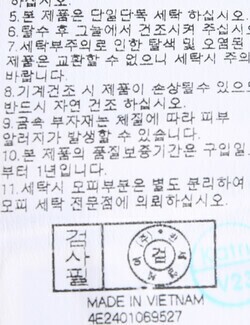 하십시오.
5.본 제품은 단일단독 세탁 하십시오.
6.탈수 후 그늘에서 건조시켜 주십시오
7.세탁부주의로 인한 탈색 및 오염된
제품은 교환할 수 없으니 세탁시 주의
바랍니다.
8.기계건조 시 제품이 손상될수 있으므
반드시 자연 건조 하십시오.
9.금속 부자재는 체질에 따라 피부
알러지가 발생할 수 있습니다.
10.본 제품의 품질보증기간은 구입일
부터 1년입니다.
11.세탁시 모피부분은 별도 분리하여
모피 세탁 전문점에 의뢰하십시오.
검사필
검
MADE IN VIETNAM
4E2401069527